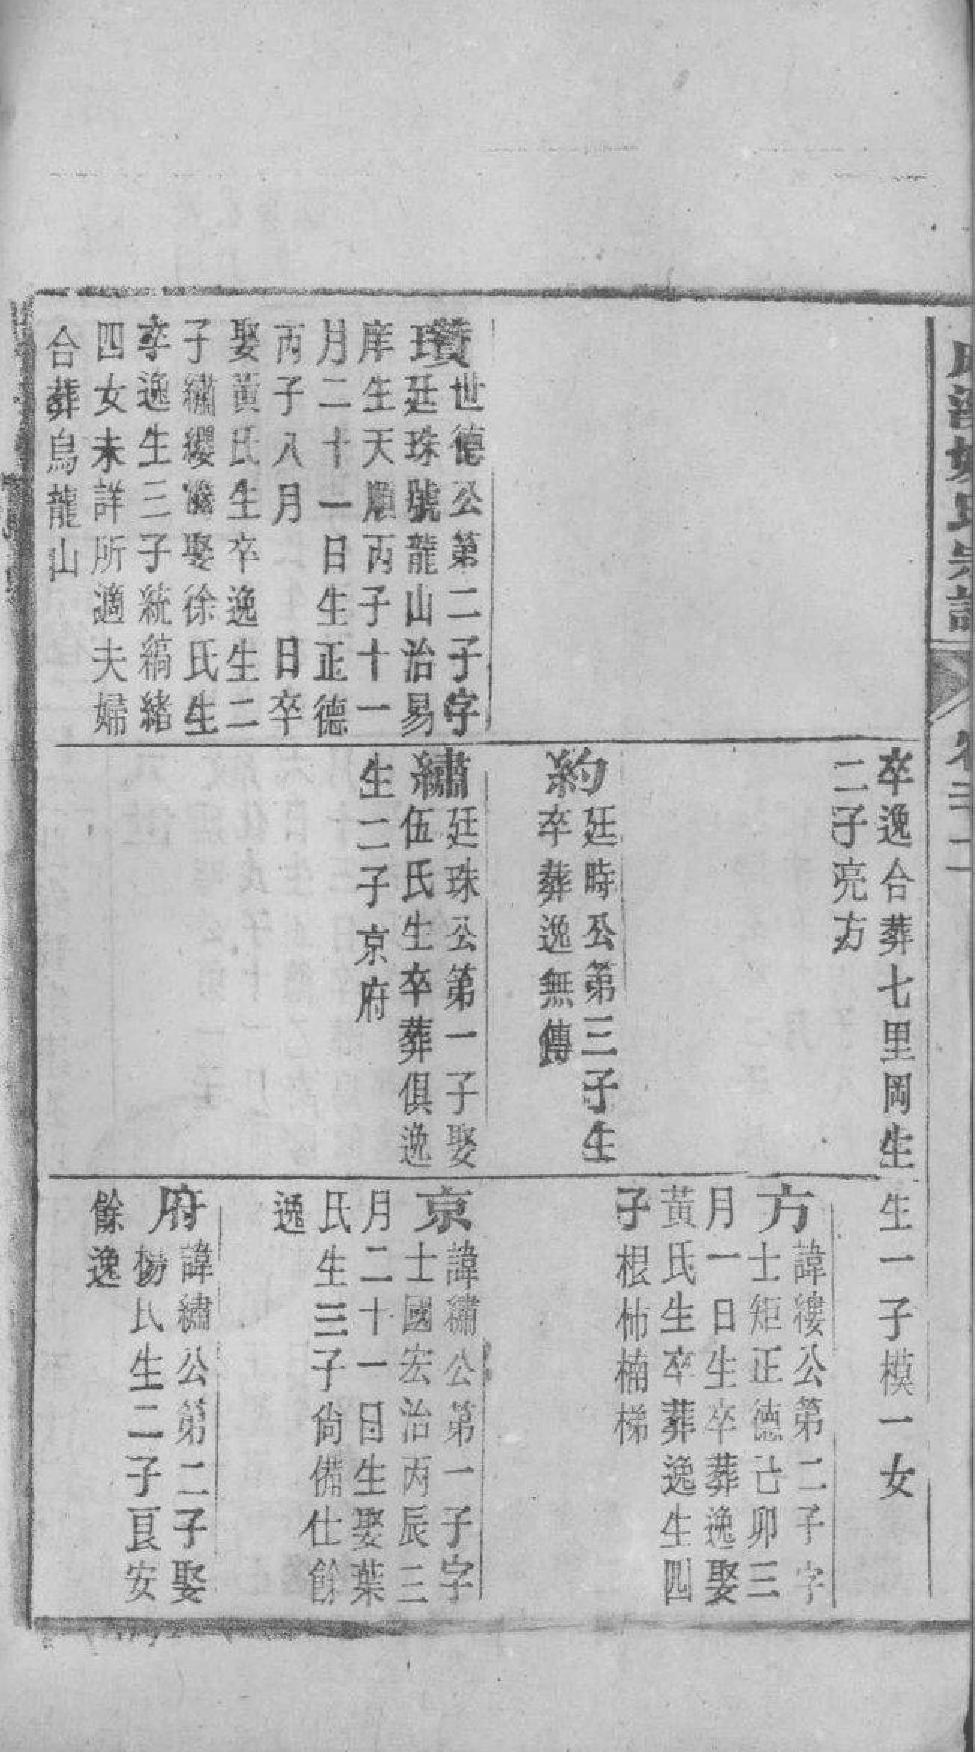 宗譜
卷
瓚世德公第二子字
廷珠號龍山治易
庠生天順丙子十一
月二十一日生正德
丙子八月 日卒
娶黃氏生卒逸生二
子繡纓 娶徐氏生
卒逸生三子統縞緒
四女未詳所適夫婦
合葬烏龍山
卒逸合葬七里岡生
二子亮方
約廷時公第三子生
卒葬逸無傳
繡廷珠公第一子娶
伍氏生卒葬俱逸
生二子京府
生一子模一女
方諱縷公第二子字
士矩正德己卯三
月一日生卒葬逸娶
黃氏生卒葬逸生四
子根柿楠梯
京諱繡公第一子字
士國宏治丙辰三
月二十一日生娶葉
氏生三子尙備仕餘
逸
府諱繡公第二子娶
楊氏生二子良安
餘逸